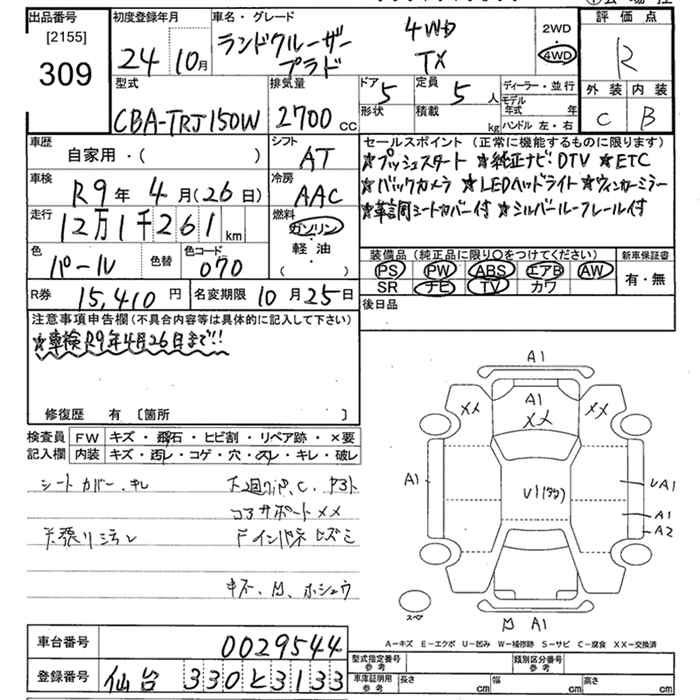 出品番号 初度登録年月 車名・グレード 評価点
[2155] 24 10月 ランドクルーザープラド 4WD TX 2WD 4WD R
309
型式 排気量 ドア 定員 ディーラー・並行 外装 内装
CBA-TRJ150W 2700 cc 5 5人 モデル年式 年 C B
形状 積載 kg ハンドル 左・右
車歴 シフト セールスポイント (正常に機能するものに限ります)
自家用・( ) AT ★プッシュスタート ★純正ナビ・DTV ★ETC
車検 冷房 ★バックカメラ ★LEDヘッドライト ★ウィンカーミラー
R9年4月(26日) AAC ★革調シートカバー付 ★シルバールーフレール付
走行 燃料
12万1千261km ガソリン・軽油・( )
色 色替 色コード 装備品 (純正品に限り○をつけてください) 新車保証書
パール 070 PS PW ABS エアB AW 有・無
SR ナビ TV カワ
R券 15,410円 名変期限 10月25日 後日品
注意事項申告欄(不具合内容等は具体的に記入して下さい)
★車検R9年4月26日まで!!
修復歴 有 〔箇所 〕
検査員 FW キズ・飛石・ヒビ割・リペア跡・×要
記入欄 内装 キズ・汚レ・コゲ・穴・スレ・キレ・破レ
シートカバー、キレ
コアサポートメメ
天張り汚レ
キズ、凹、ホシュウ
A1
A1
XX
XX
XX
A1
U1
UA1
A1
A2
A1
スペア
A-キズ E-エクボ U-凹み W-補修跡 S-サビ C-腐食 XX-交換済
車台番号 0029544
登録番号 仙台 330 と 3133
型式指定番号 参考 類別区分番号 参考
車庫証明用 参考 長さ cm 幅 cm 高さ cm